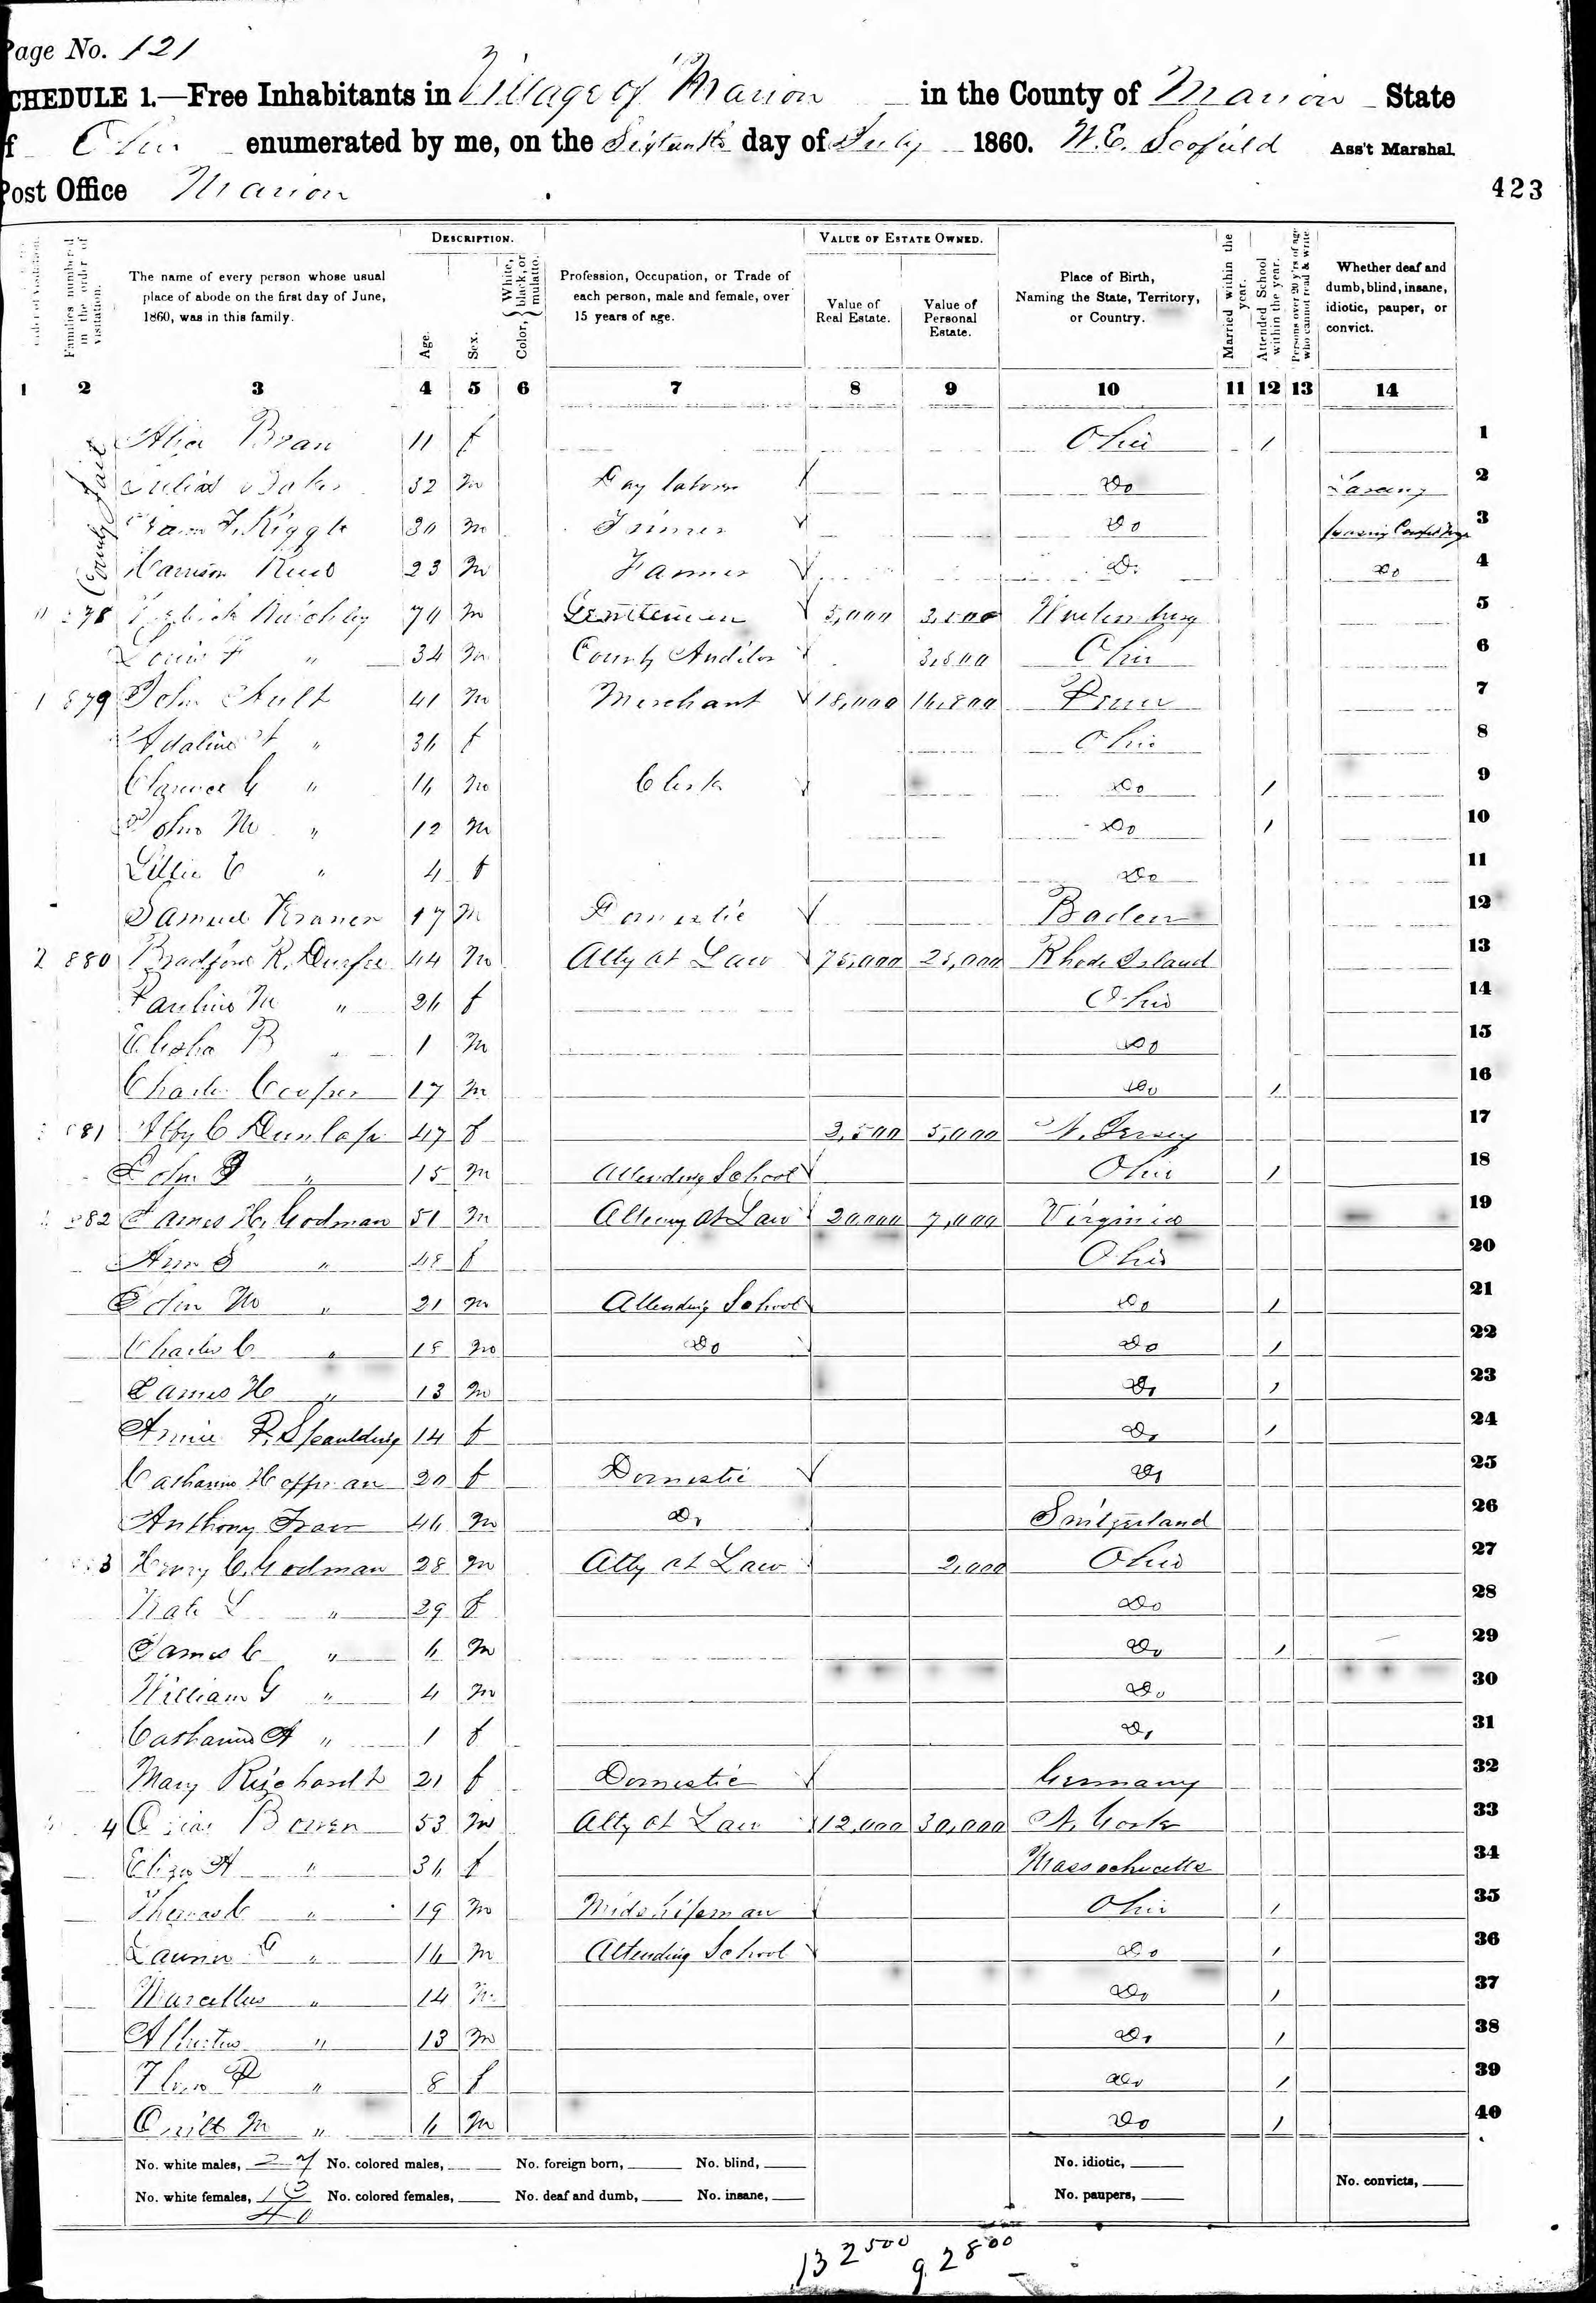 Page No. 121
SCHEDULE 1.—Free Inhabitants in Village of Marion in the County of Marion State
of Ohio enumerated by me, on the Sixteenth day of July 1860. W. E. Scofield Ass't Marshal.
Post Office Marion
423
DESCRIPTION. VALUE OF ESTATE OWNED.
Families numbered in the order of visitation.
The name of every person whose usual place of abode on the first day of June, 1860, was in this family.
Age. Sex. Color, { White, black, or mulatto.
Profession, Occupation, or Trade of each person, male and female, over 15 years of age.
Value of Real Estate. Value of Personal Estate.
Place of Birth, Naming the State, Territory, or Country.
Married within the year. Attended School within the year. Persons over 20 y'rs of age who cannot read & write
Whether deaf and dumb, blind, insane, idiotic, pauper, or convict.
1 2 3 4 5 6 7 8 9 10 11 12 13 14
County Jail
Alice 11 f Ohio / 1
32 m Day laborer Do Larceny 2
Riggle 30 m Do 3
Harrison 23 m Farmer Do Do 4
78 70 m Gentleman 5,000 Wurtemburg 5
Louis F " 34 m County Auditor Ohio 6
879 John Ault 41 m Merchant 18,000 16,800 Penn 7
Adaline " 36 f Ohio 8
Clarence G " 16 m Clerk Do / 9
John M " 12 m Do / 10
Lillie C " 4 f Do 11
Samuel Kraner 17 m Domestic Baden 12
880 Bradford R. Durfee 44 m Atty at Law 75,000 25,000 Rhode Island 13
Pauline M " 26 f Ohio 14
Elisha B " 1 m Do 15
Charles Cooper 17 m Do / 16
81 Abby C Dunlap 47 f 2,500 5,000 N. Jersey 17
John " 15 m Attending School Ohio / 18
82 James H. Godman 51 m Attorney at Law 20,000 7,000 Virginia 19
Ann S " 48 f Ohio 20
John M " 21 m Attending School Do / 21
Charles C " 18 m Do Do / 22
James H " 13 m Do / 23
Annie P. Spaulding 14 f Do / 24
Catharine Hoffman 20 f Domestic Do 25
Anthony 46 m Do Switzerland 26
3 Henry C. Godman 28 m Atty at Law 2,000 Ohio 27
Kate L " 29 f Do 28
James C " 6 m Do / 29
William G " 4 m Do 30
Catharine A " 1 f Do 31
Mary 21 f Domestic Germany 32
4 Bowen 53 m Atty at Law 12,000 30,000 N. York 33
Eliza A " 36 f Massachusetts 34
Thomas C " 19 m Midshipman Ohio / 35
" 16 m Attending School Do / 36
Marcellus " 14 m Do / 37
Albertus " 13 m Do / 38
" 8 f Do / 39
M " 6 m Do / 40
No. white males, 27 No. colored males, No. foreign born, No. blind, No. idiotic,
No. white females, 13 No. colored females, No. deaf and dumb, No. insane, No. paupers, No. convicts,
40
132500 92800